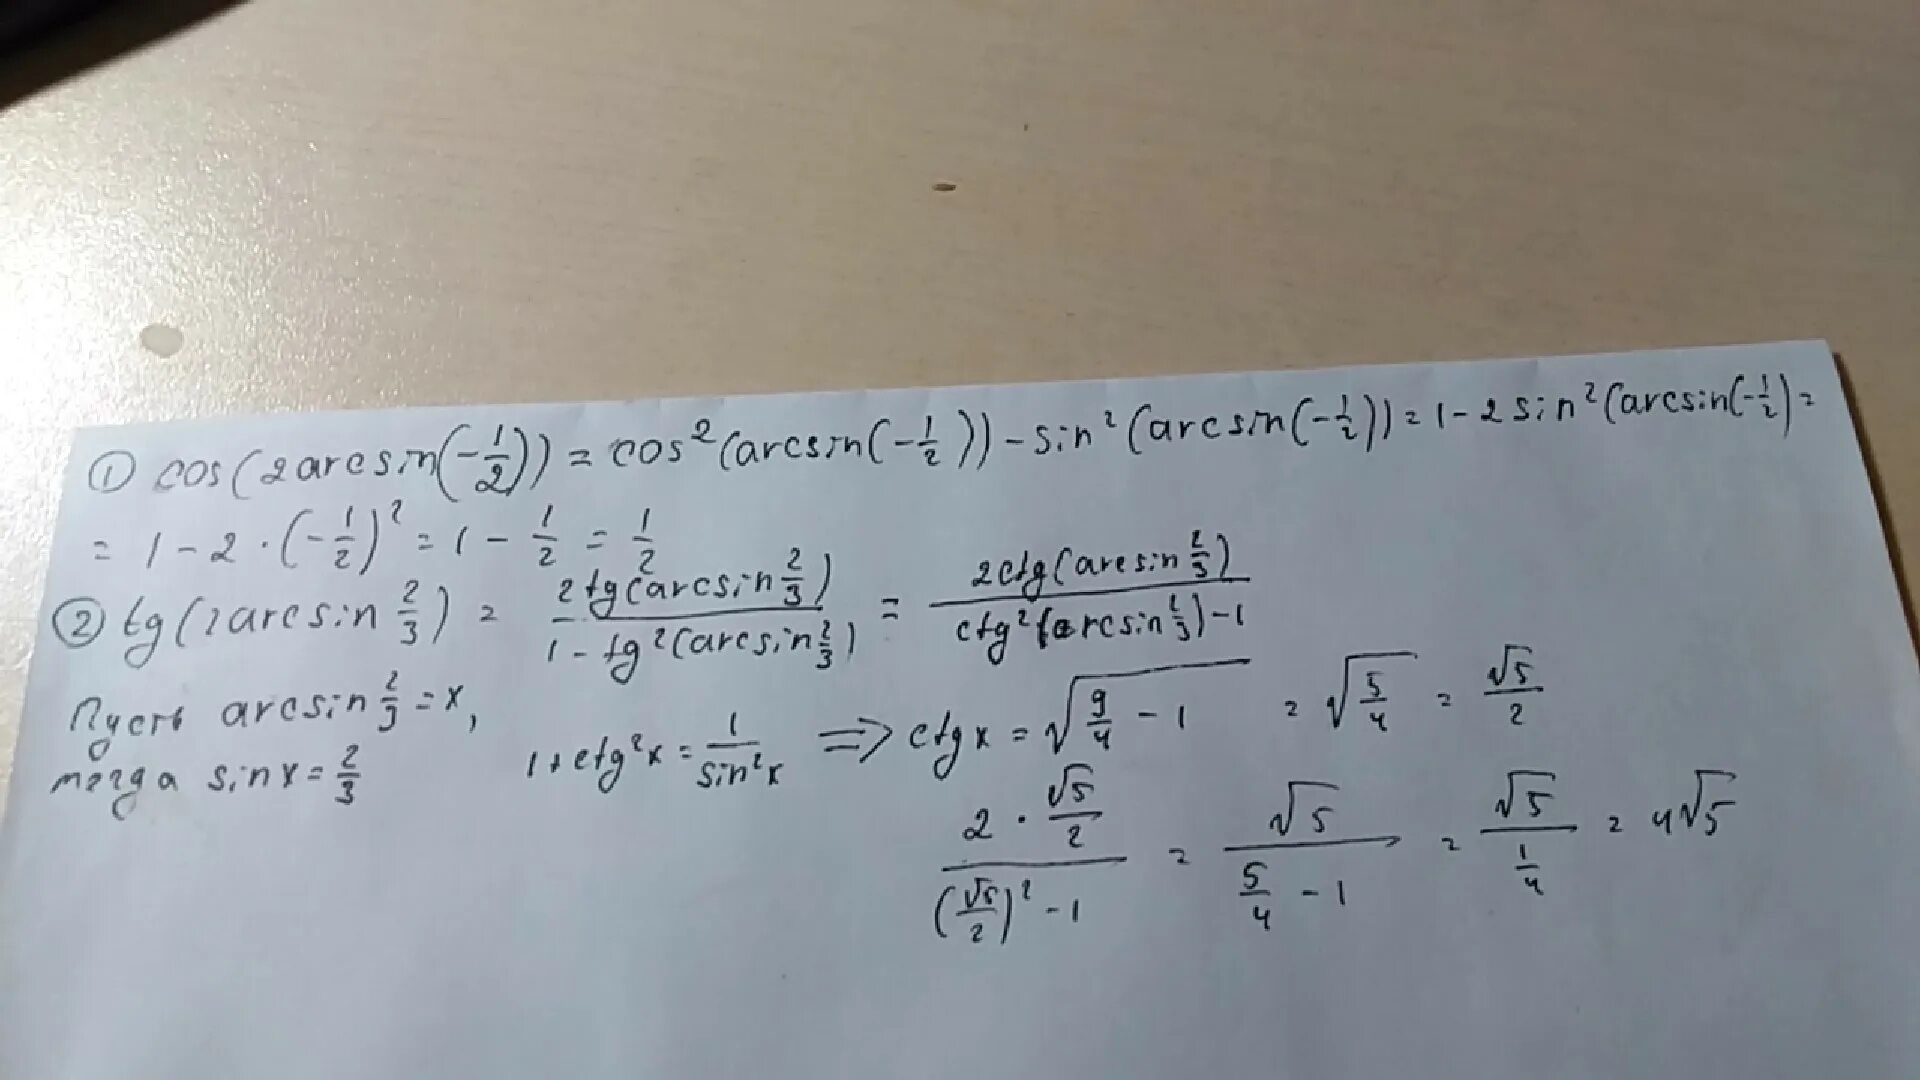 ① cos(2arcsin(-1/2)) = cos²(arcsin(-1/2)) - sin²(arcsin(-1/2)) = 1 - 2sin²(arcsin(-1/2) =
= 1 - 2 · (-1/2)² = 1 - 1/2 = 1/2
② tg(2arcsin 2/3) = 2tg(arcsin 2/3) / 1 - tg²(arcsin 2/3) = 2ctg(arcsin 2/3) / ctg²(arcsin 2/3) - 1
Пусть arcsin 2/3 = x,
тогда sin x = 2/3
1 + ctg²x = 1/sin²x ⇒ ctg x = √(9/4 - 1) = √(5/4) = √5/2
2 · √5/2 / (√5/2)² - 1 = √5 / 5/4 - 1 = √5 / 1/4 = 4√5